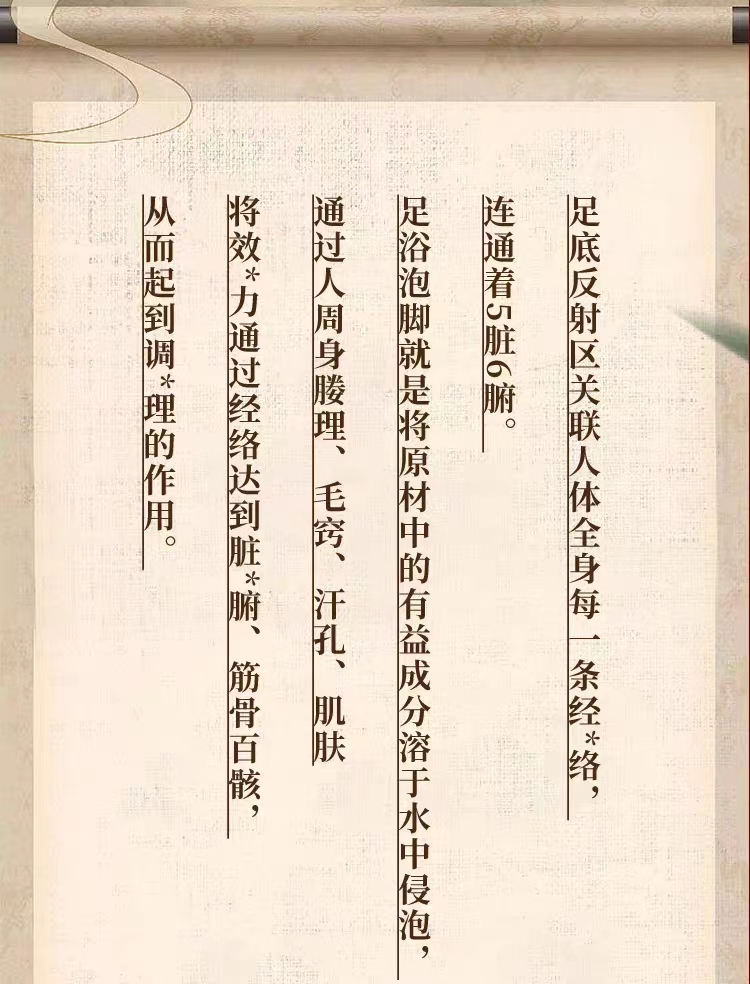 足底反射区关联人体全身每一条经*络，
连通着5脏6腑。
足浴泡脚就是将原材中的有益成分溶于水中侵泡，
通过人周身媵理、毛窍、汗孔、肌肤
将效*力通过经络达到脏*腑、筋骨百骸，
从而起到调*理的作用。